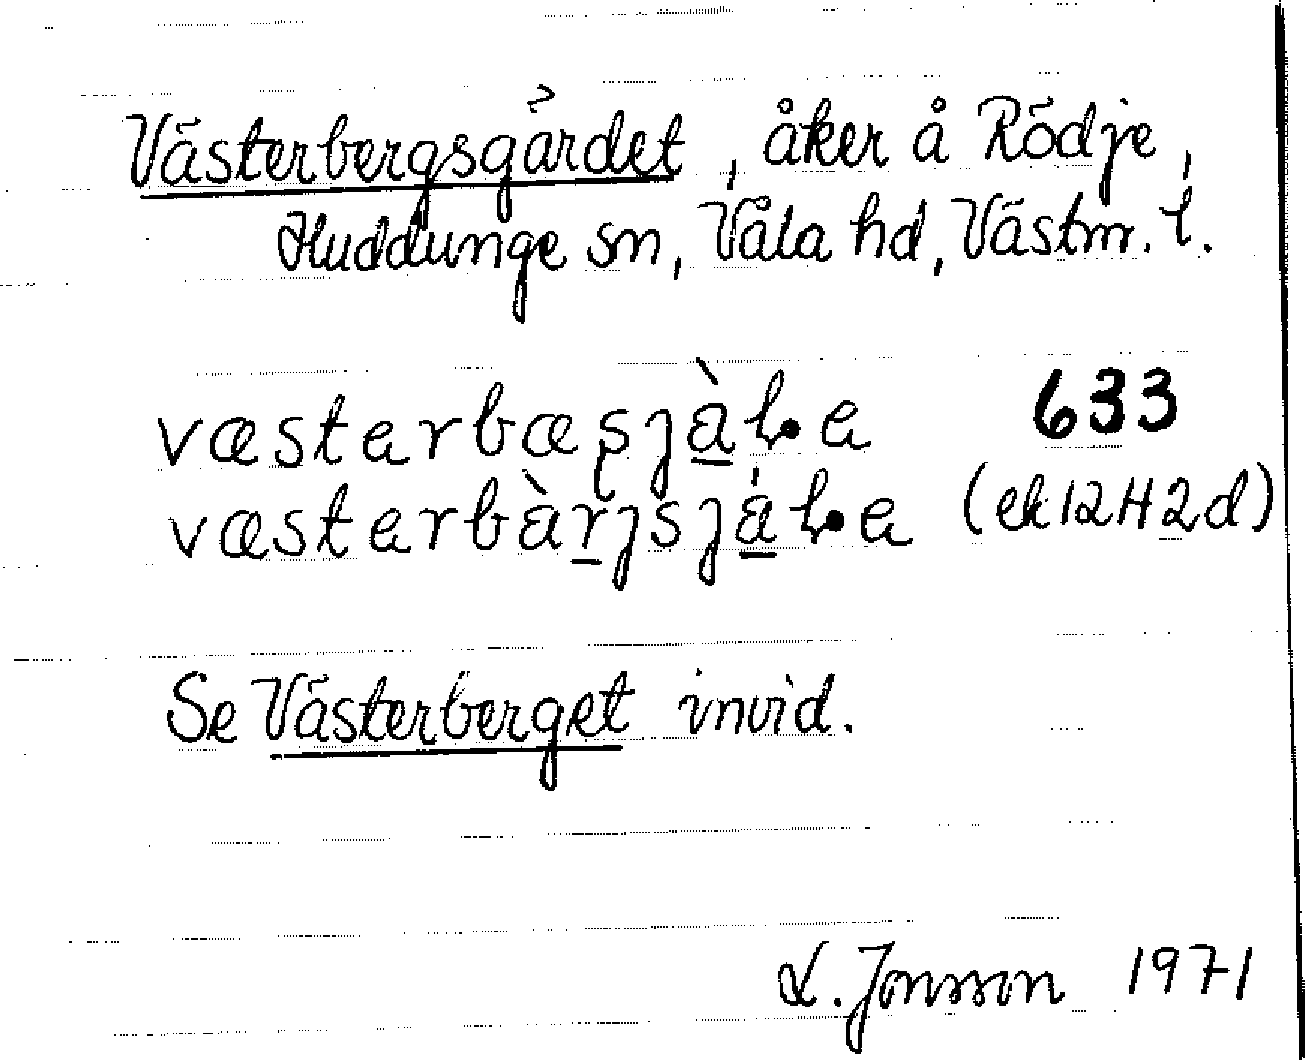 Västerbergsgärdet, åker å Rödje,
Huddunge sn, Våla hd, Västm. l.
væsterbæsjàḷe 633
væsterbàrjsjáḷe (ek 12H2d)
Se Västerberget invid.
L. Jonsson 1971